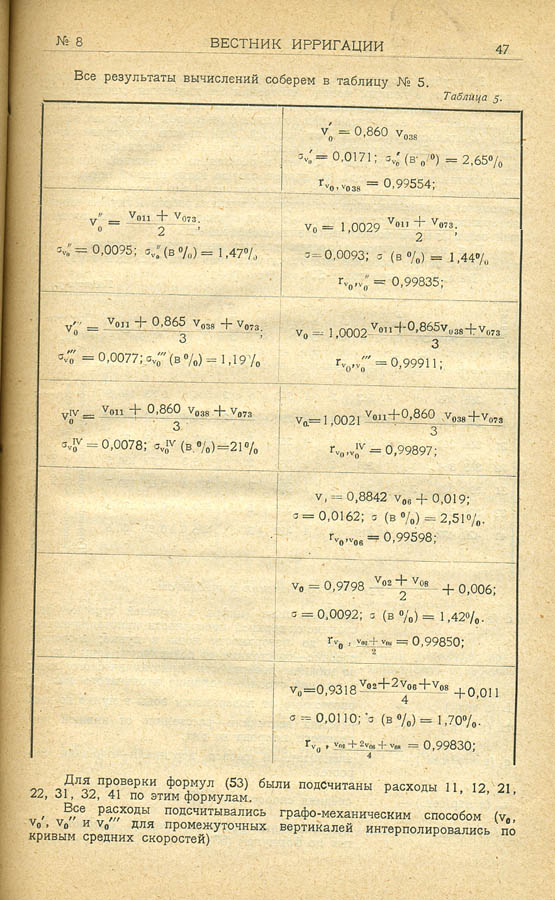 № 8 ВЕСТНИК ИРРИГАЦИИ 47
Все результаты вычислений соберем в таблицу № 5.
Таблица 5.
v₀′ = 0,860 v₀₃₈
σᵥ₀′ = 0,0171; σᵥ₀′ (в %) = 2,65%
rᵥ₀, ᵥ₀₃₈ = 0,99554;
v₀″ = (v₀₁₁ + v₀₇₃)/2,
σᵥ₀″ = 0,0095; σᵥ₀″ (в %) = 1,47%
v₀ = 1,0029 (v₀₁₁ + v₀₇₃)/2,
σ = 0,0093; σ (в %) = 1,44%
rᵥ₀,ᵥ₀″ = 0,99835;
v₀‴ = (v₀₁₁ + 0,865 v₀₃₈ + v₀₇₃)/3,
σᵥ₀‴ = 0,0077; σᵥ₀‴ (в %) = 1,19%
v₀ = 1,0002 (v₀₁₁ + 0,865 v₀₃₈ + v₀₇₃)/3
rᵥ₀,ᵥ₀‴ = 0,99911;
v₀ᴵⱽ = (v₀₁₁ + 0,860 v₀₃₈ + v₀₇₃)/3
σᵥ₀ᴵⱽ = 0,0078; σᵥ₀ᴵⱽ (в %) = 21%
v₀ = 1,0021 (v₀₁₁ + 0,860 v₀₃₈ + v₀₇₃)/3
rᵥ₀,ᵥ₀ᴵⱽ = 0,99897;
v, = 0,8842 v₀₆ + 0,019;
σ = 0,0162; σ (в %) = 2,51%.
rᵥ₀,ᵥ₀₆ = 0,99598;
v₀ = 0,9798 (v₀₂ + v₀₈)/2 + 0,006;
σ = 0,0092; σ (в %) = 1,42%.
rᵥ₀, (v₀₂ + v₀₈)/2 = 0,99850;
v₀ = 0,9318 (v₀₂ + 2v₀₆ + v₀₈)/4 + 0,011
σ = 0,0110; σ (в %) = 1,70%.
rᵥ₀, (v₀₂ + 2v₀₆ + v₀₈)/4 = 0,99830;
Для проверки формул (53) были подсчитаны расходы 11, 12, 21,
22, 31, 32, 41 по этим формулам.
Все расходы подсчитывались графо-механическим способом (v₀,
v₀′, v₀″ и v₀‴ для промежуточных вертикалей интерполировались по
кривым средних скоростей)